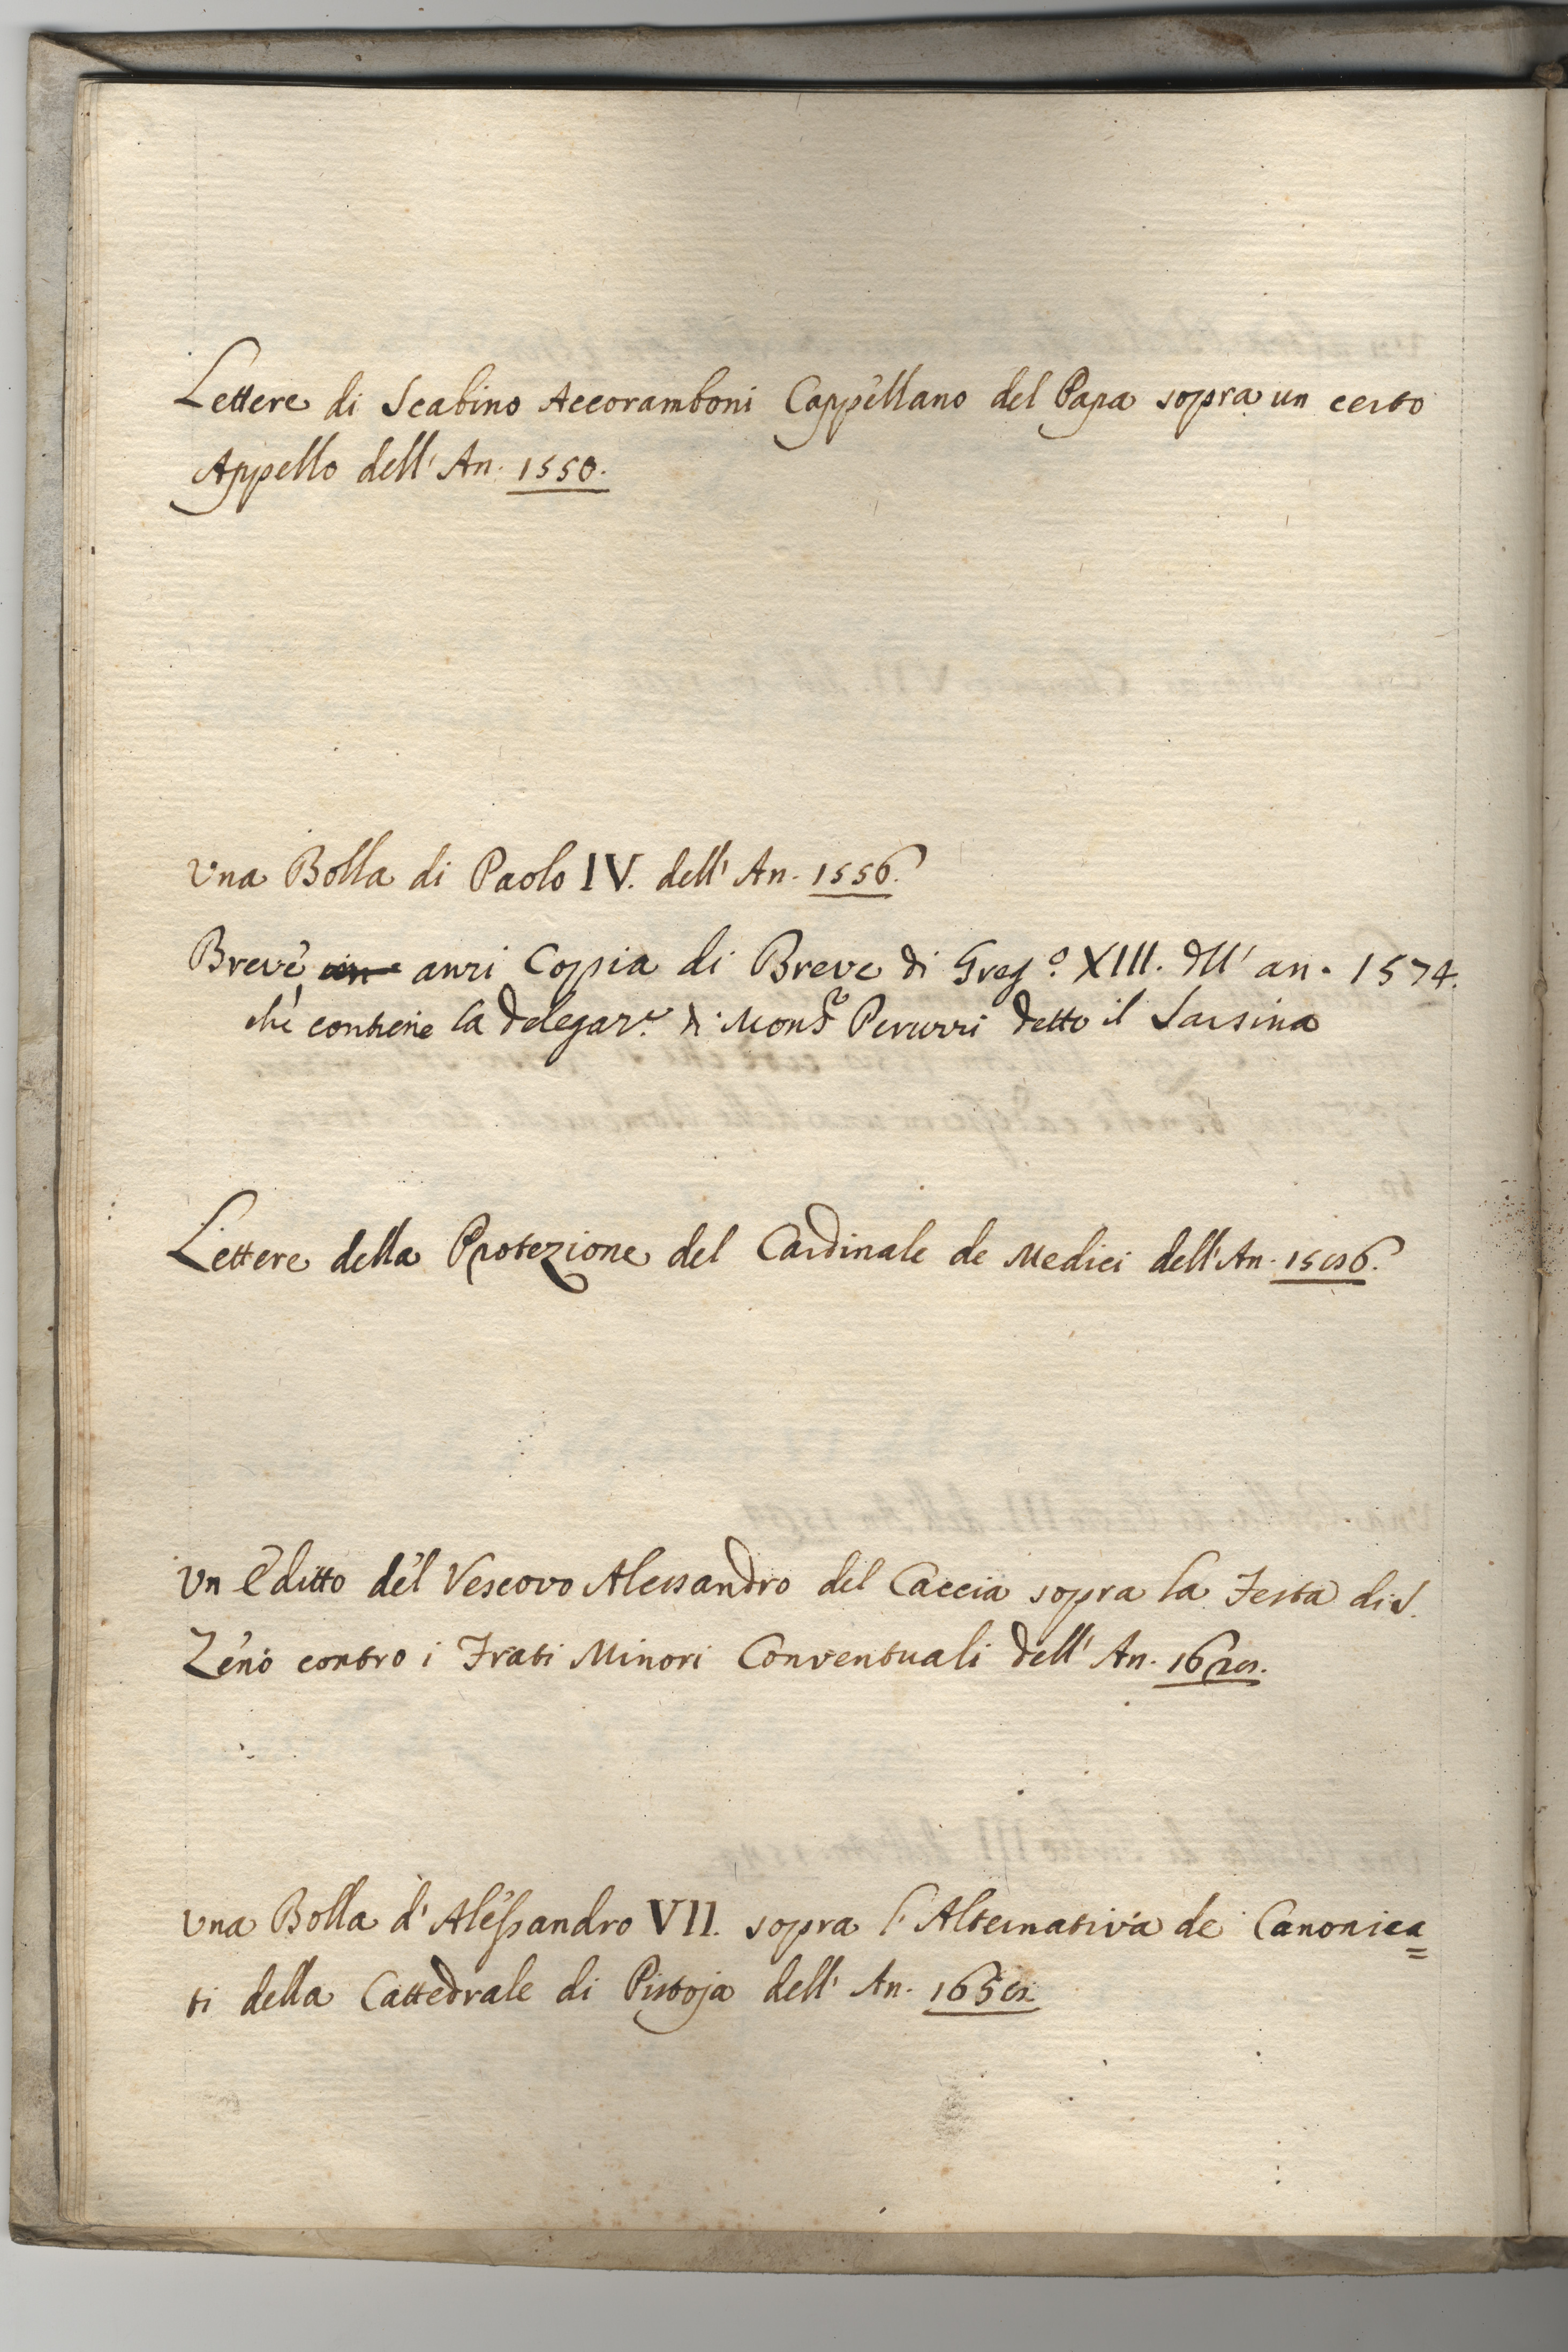 Lettere di Scabino Accoramboni Cappellano del Papa sopra un certo
Appello dell' An. 1550.
Una Bolla di Paolo IV. dell' An. 1556.
Breve anzi Copia di Breve di Greg.º XIII. dell' an. 1574.
che contiene la delegaz.e di Mons.r Peruzzi detto il Sarsina
Lettere della Protezione del Cardinale de Medici dell' An. 1596.
Un Editto del Vescovo Alessandro del Caccia sopra la Festa di S.
Zeno contro i Frati Minori Conventuali dell' An. 1629.
Una Bolla d' Alessandro VII. sopra l' Alternativa de' Canonica=
ti della Cattedrale di Pistoja dell' An. 1659.